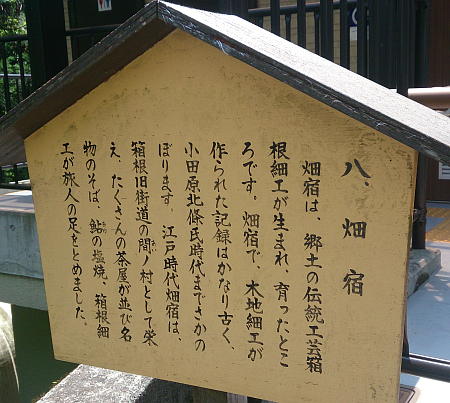 八、畑宿
畑宿は、郷土の伝統工芸箱
根細工が生まれ、育ったとこ
ろです。畑宿で、木地細工が
作られた記録はかなり古く、
小田原北條氏時代までさかの
ぼります。江戸時代畑宿は、
箱根旧街道の間ノ村として栄
え、たくさんの茶屋が並び名
物のそば、鮎の塩焼、箱根細
工が旅人の足をとめました。